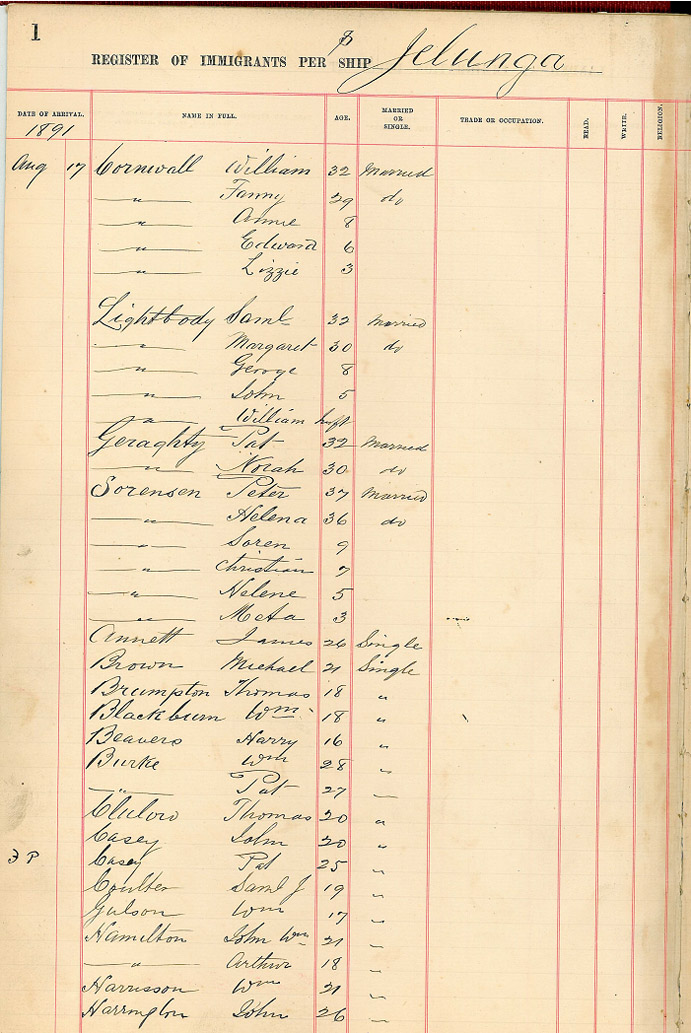 1
B
REGISTER OF IMMIGRANTS PER SHIP Jelunga
DATE OF ARRIVAL. NAME IN FULL. AGE. MARRIED OR SINGLE. TRADE OR OCCUPATION. READ. WRITE. RELIGION.
1891
Aug 17 Cornwall William 32 Married
" Fanny 29 do
" Annie 8
" Edward 6
" Lizzie 3
Lightbody Saml 32 Married
" Margaret 30 do
" George 8
" John 5
" William Inft
Geraghty Pat 32 Married
" Norah 30 do
Sorensen Peter 37 Married
" Helena 36 do
" Soren 9
" Christian 7
" Helene 5
" Meta 3
Annett James 26 Single
Brown Michael 21 Single
Brumpton Thomas 18 "
Blackburn Wm 18 "
Beavers Harry 16 "
Burke Wm 28 "
" Pat 27 "
Clulow Thomas 20 "
Casey John 20 "
F P Casey Pat 25 "
Coulter Saml J 19 "
Galson Wm 17 "
Hamilton John Wm 21 "
" Arthur 18 "
Harrisson Wm 21 "
Harrington John 26 "